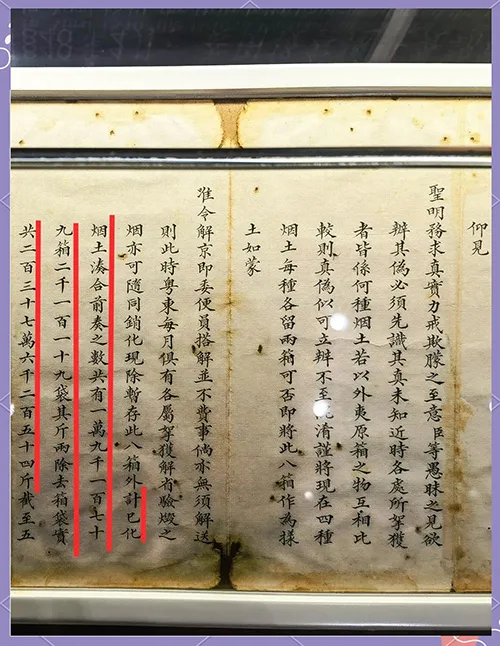 仰見
聖明務求真實力戒欺朦之至意臣等愚昧之見欲
辨其偽必須先識其真未知近時各處所拏獲
者皆係何種烟土若以外夷原箱之物互相比
較則真偽似可立辨不至淆謹將現在四種
烟土每種各留兩箱可否即將此八箱作為樣
土如蒙
准令解京即委便員搭解並不費事倘亦無須解送
則此時粵東每月俱有各屬拏獲解省驗燬之
烟亦可隨同銷化現除暫存此八箱外計已化
烟土湊合前奏之數共有一萬九千一百七十
九箱二千一百一十九袋其斤兩除去箱袋實
共二百三十七萬六千二百五十四斤截至五